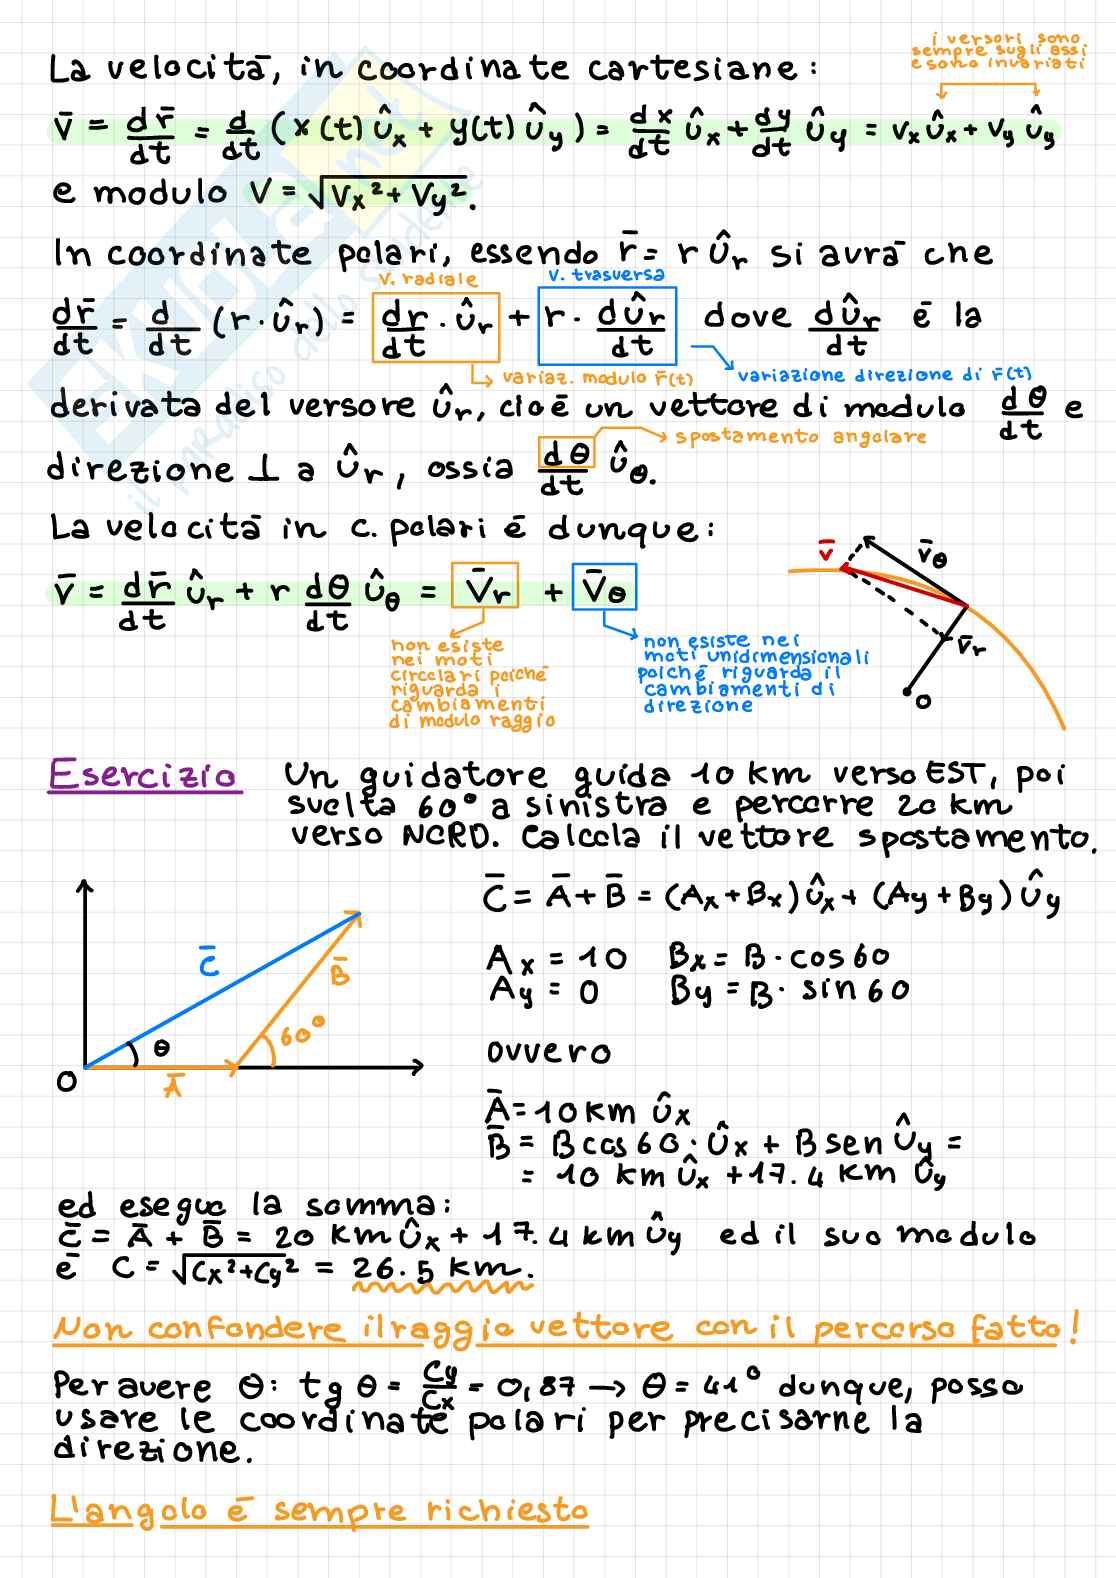 i versori sono
sempre sugli assi
e sono invariati
La velocitā, in coordinate cartesiane:
v̄ = dr̄/dt = d/dt (x(t) û_x + y(t) û_y) = dx/dt û_x + dy/dt û_y = v_x û_x + v_y û_y
e modulo V = √(V_x² + V_y²).
In coordinate polari, essendo r̄ = r û_r si avrā che
V. radiale V. trasversa
dr̄/dt = d/dt (r · û_r) = dr/dt · û_r + r · dû_r/dt dove dû_r/dt ē la
variaz. modulo r̄(t) variazione direzione di r̄(t)
derivata del versore û_r, cioē un vettore di modulo dθ/dt e
spostamento angolare
direzione ⊥ a û_r, ossia dθ/dt û_θ.
La velocitā in c. polari ē dunque:
v̄ = dr̄/dt û_r + r dθ/dt û_θ = V̄_r + V̄_θ
non esiste
nei moti
circolari poichē
riguarda i
cambiamenti
di modulo raggio
non esiste nei
moti unidimensionali
poichē riguarda il
cambiamenti di
direzione
v̄ v̄_θ
v̄_r
O
Esercizio Un guidatore guida 10 km verso EST, poi
svolta 60° a sinistra e percorre 20 km
verso NORD. Calcola il vettore spostamento.
C̄ = Ā + B̄ = (A_x + B_x) û_x + (A_y + B_y) û_y
A_x = 10 B_x = B · cos 60
A_y = 0 B_y = B · sin 60
C̄ B̄
θ 60°
O Ā
ovvero
Ā = 10 km û_x
B̄ = B cos 60 · û_x + B sen û_y =
= 10 km û_x + 17.4 km û_y
ed eseguo la somma:
C̄ = Ā + B̄ = 20 km û_x + 17.4 km û_y ed il suo modulo
ē C = √(C_x² + C_y²) = 26.5 km.
Non confondere il raggio vettore con il percorso fatto!
Per avere θ: tg θ = C_y/C_x = 0,87 → θ = 41° dunque, posso
usare le coordinate polari per precisarne la
direzione.
L'angolo ē sempre richiesto
SKUOLA.net
il paradiso dello studente